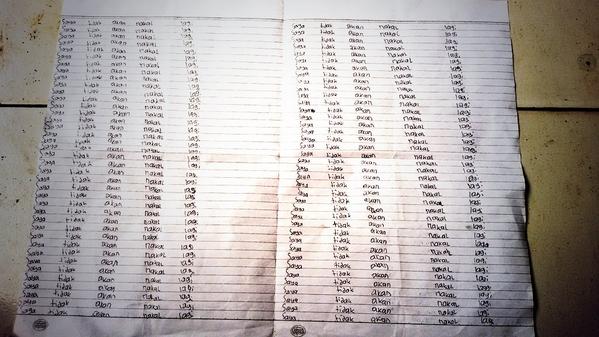 Saya tidak akan nakal lagi
Saya tidak akan nakal lagi
Saya tidak akan nakal lagi
Saya tidak akan nakal lagi
Saya tidak akan nakal lagi
Saya tidak akan nakal lagi
Saya tidak akan nakal lagi
Saya tidak akan nakal lagi
Saya tidak akan nakal lagi
Saya tidak akan nakal lagi
Saya tidak akan nakal lagi
Saya tidak akan nakal lagi
Saya tidak akan nakal lagi
Saya tidak akan nakal lagi
Saya tidak akan nakal lagi
Saya tidak akan nakal lagi
Saya tidak akan nakal lagi
Saya tidak akan nakal lagi
Saya tidak akan nakal lagi
Saya tidak akan nakal lagi
Saya tidak akan nakal lagi
Saya tidak akan nakal lagi
Saya tidak akan nakal lagi
Saya tidak akan nakal lagi
Saya tidak akan nakal lagi
Saya tidak akan nakal lagi
Saya tidak akan nakal lagi
Saya tidak akan nakal lagi
Saya tidak akan nakal lagi
Saya tidak akan nakal lagi
Saya tidak akan nakal lagi
Saya tidak akan nakal lagi
Saya tidak akan nakal lagi
Saya tidak akan nakal lagi
Saya tidak akan nakal lagi
Saya tidak akan nakal lagi
Saya tidak akan nakal lagi
Saya tidak akan nakal lagi
Saya tidak akan nakal lagi
Saya tidak akan nakal lagi
Saya tidak akan nakal lagi
Saya tidak akan nakal lagi
Saya tidak akan nakal lagi
Saya tidak akan nakal lagi
Saya tidak akan nakal lagi
Saya tidak akan nakal lagi
Saya tidak akan nakal lagi
Saya tidak akan nakal lagi
Saya tidak akan nakal lagi
Saya tidak akan nakal lagi
Saya tidak akan nakal lagi
Saya tidak akan nakal lagi
Saya tidak akan nakal lagi
Saya tidak akan nakal lagi
Saya tidak akan nakal lagi
Saya tidak akan nakal lagi
Saya tidak akan nakal lagi
Saya tidak akan nakal lagi
Saya tidak akan nakal lagi
Saya tidak akan nakal lagi
Saya tidak akan nakal lagi
Saya tidak akan nakal lagi
Saya tidak akan nakal lagi
Saya tidak akan nakal lagi
Saya tidak akan nakal lagi
Saya tidak akan nakal lagi
Saya tidak akan nakal lagi
Saya tidak akan nakal lagi
Saya tidak akan nakal lagi
Saya tidak akan nakal lagi
Saya tidak akan nakal lagi
Saya tidak akan nakal lagi
Saya tidak akan nakal lagi
Saya tidak akan nakal lagi
Saya tidak akan nakal lagi
Saya tidak akan nakal lagi